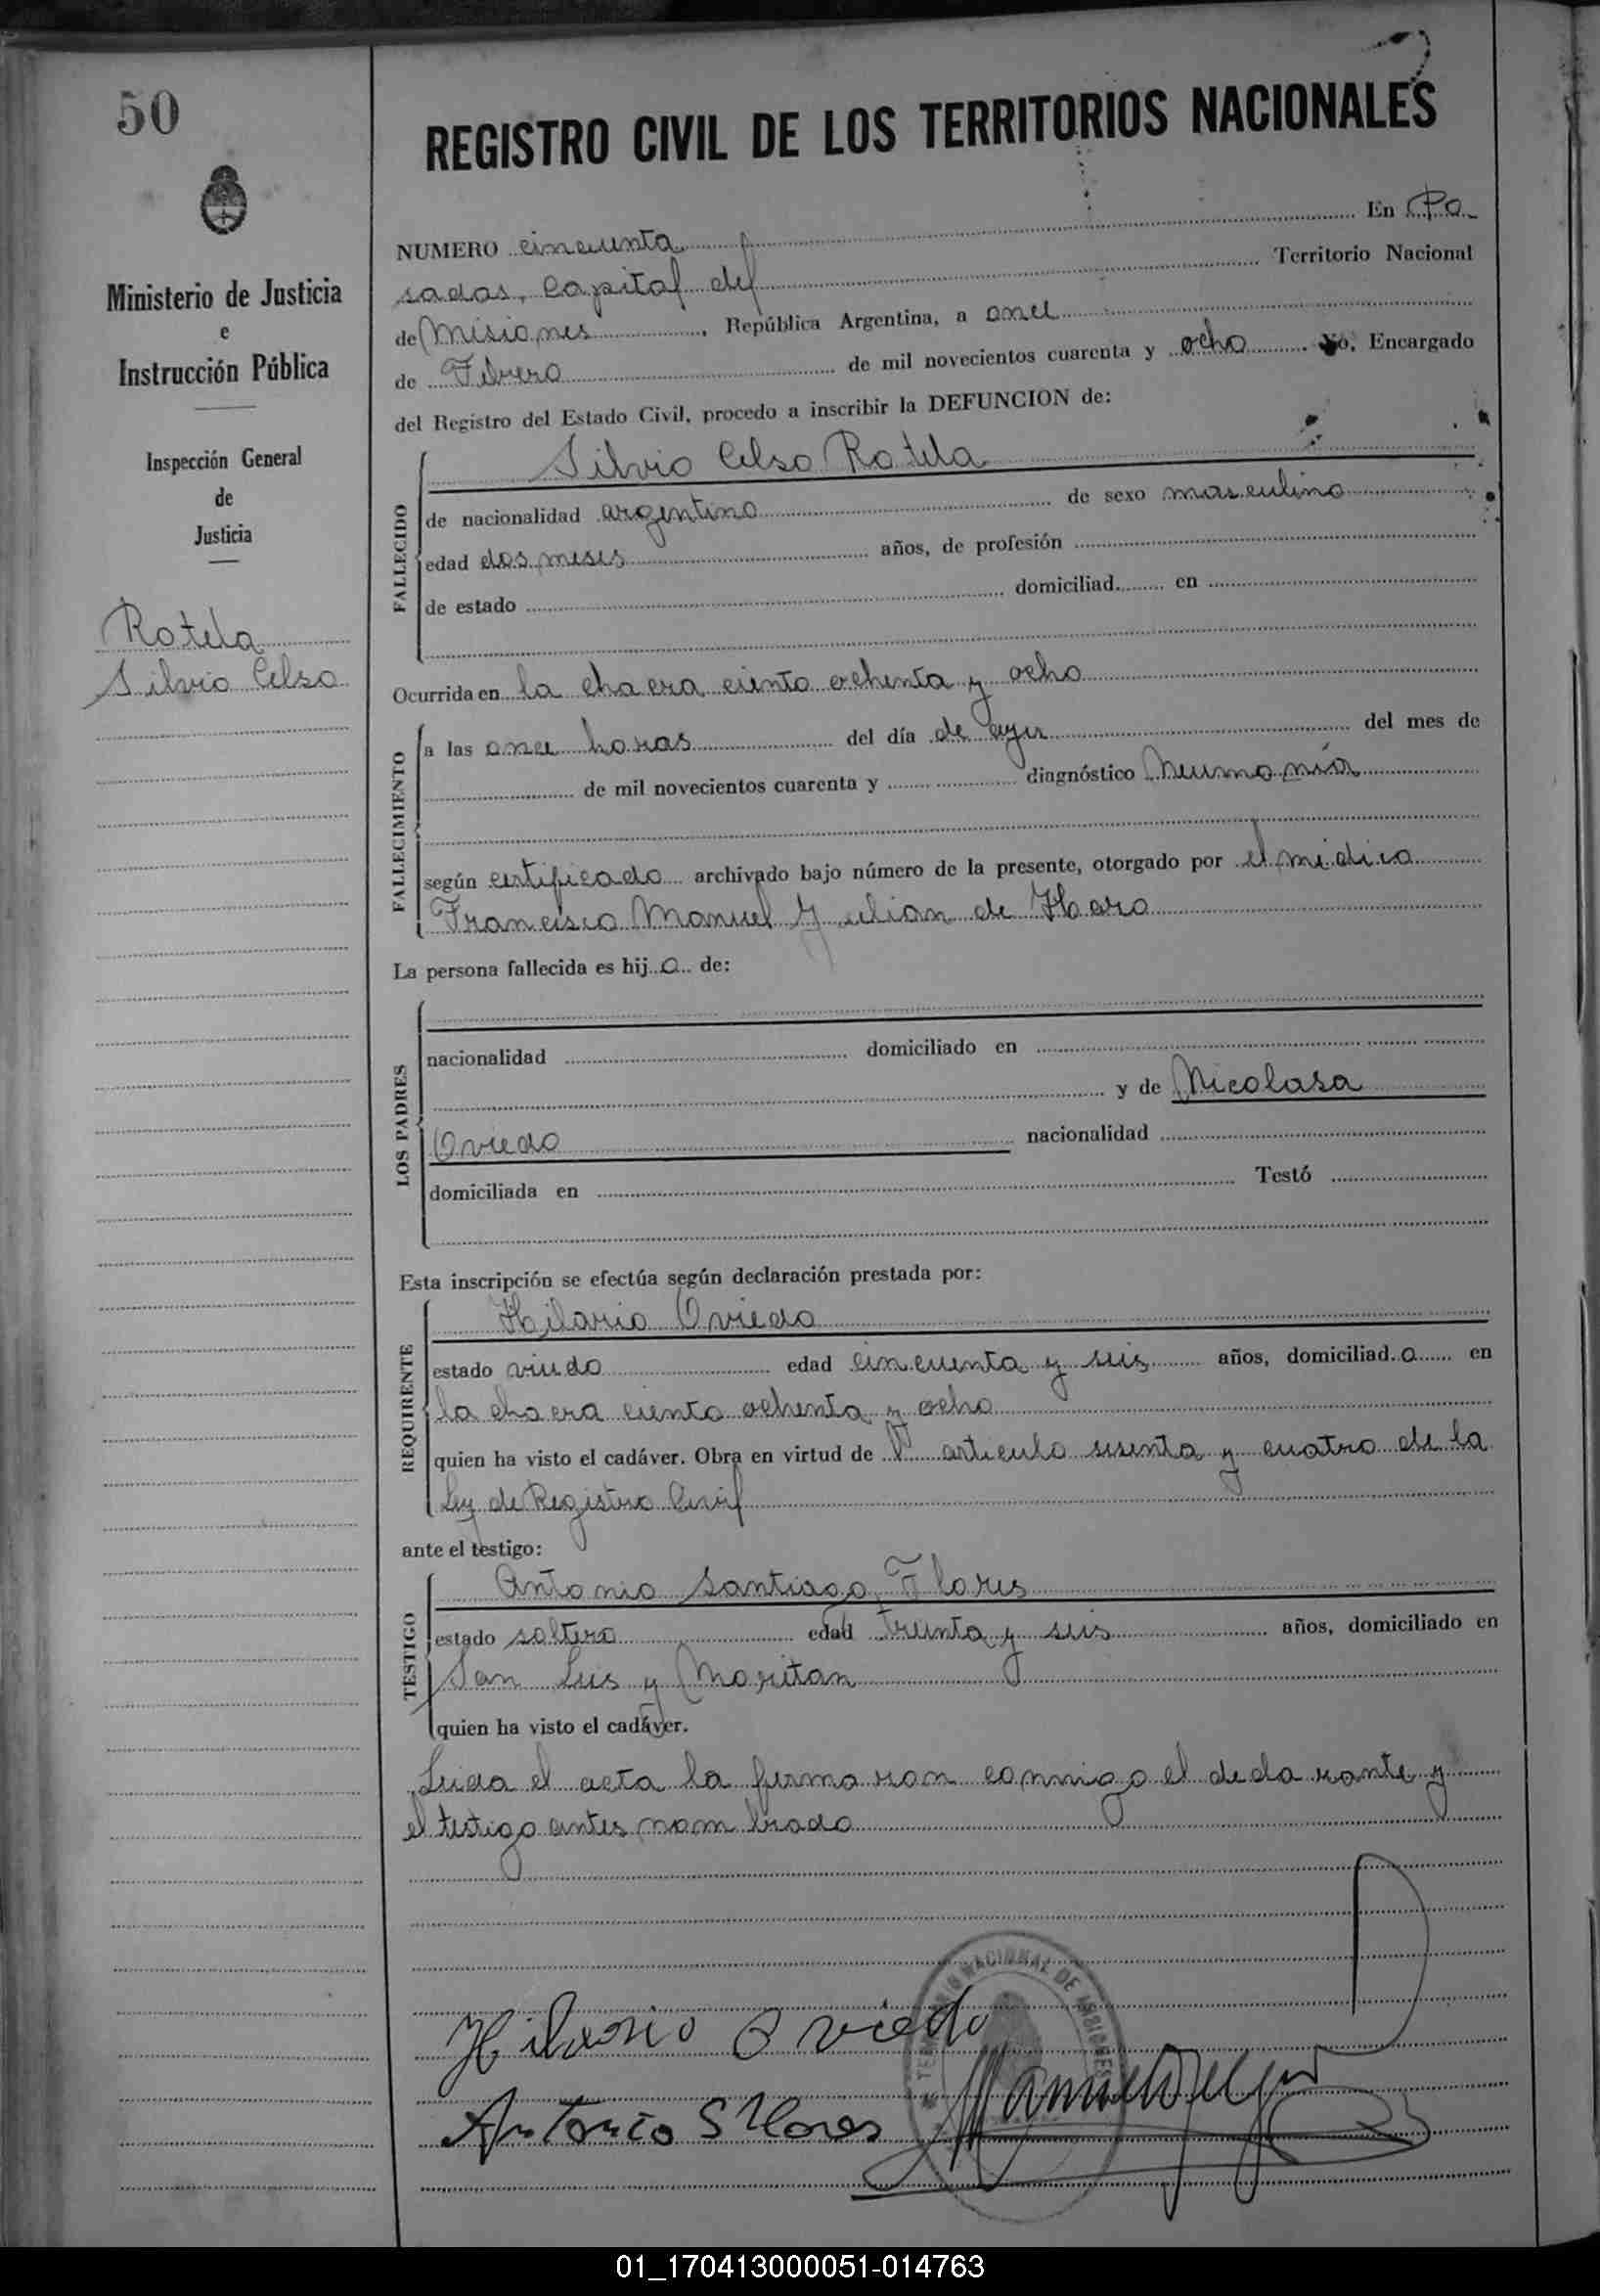 50
Ministerio de Justicia
e
Instrucción Pública
Inspección General
de
Justicia
Rotela
Silvio Celso
REGISTRO CIVIL DE LOS TERRITORIOS NACIONALES
NUMERO cincuenta En Po_
sadas, Capital del Territorio Nacional
de Misiones, República Argentina, a once
de Febrero de mil novecientos cuarenta y ocho. Yo, Encargado
del Registro del Estado Civil, procedo a inscribir la DEFUNCION de:
FALLECIDO
Silvio Celso Rotela
de nacionalidad argentino de sexo masculino
edad dos meses años, de profesión
de estado domiciliad en
Ocurrida en la chacra ciento ochenta y ocho
FALLECIMIENTO
a las once horas del día de ayer del mes de
de mil novecientos cuarenta y diagnóstico Neumonía
según certificado archivado bajo número de la presente, otorgado por el médico
Francisco Manuel Julian de Haro
La persona fallecida es hijo de:
LOS PADRES
nacionalidad domiciliado en
y de Nicolasa
Oviedo nacionalidad
domiciliada en Testó
Esta inscripción se efectúa según declaración prestada por:
REQUIRENTE
Hilario Oviedo
estado viudo edad cincuenta y seis años, domiciliado en
la chacra ciento ochenta y ocho
quien ha visto el cadáver. Obra en virtud de l articulo sesenta y cuatro de la
Ley de Registro Civil
ante el testigo:
TESTIGO
Antonio Santiago Flores
estado soltero edad treinta y seis años, domiciliado en
San Luis y Moritan
quien ha visto el cadáver.
Leida el acta la firmaron conmigo el declarante y
el testigo antes nombrado
TERRITORIO NACIONAL DE MISIONES
Hilario Oviedo
Antonio S Flores
01_170413000051-014763